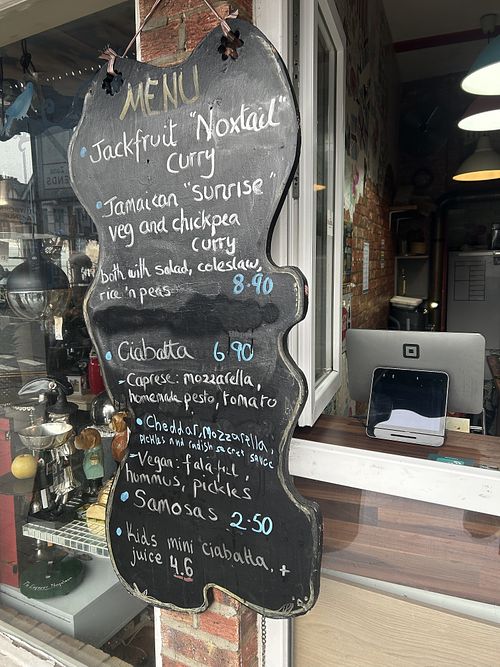 MENU
• Jackfruit "Noxtail"
curry
• Jamaican "sunrise"
veg and chickpea
curry
both with salad, coleslaw,
rice 'n peas 8.90
• Ciabatta 6.90
- Caprese: mozzarella,
homemade pesto, tomato
• Cheddar, Mozzarella,
pickles and radish secret sauce
- Vegan: falafel,
hummus, pickles
• Samosas 2.50
• Kids mini ciabatta, +
juice 4.6